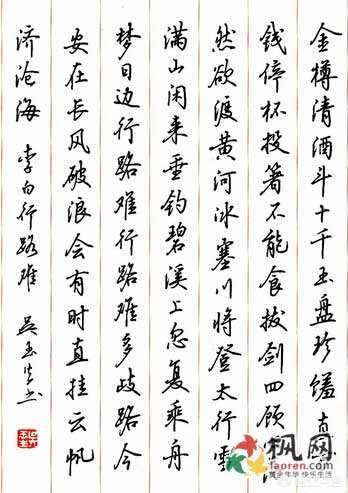 金樽清酒斗十千玉盘珍馐直
钱停杯投箸不能食拔剑四顾
然欲渡黄河冰塞川将登太行雪
满山闲来垂钓碧溪上忽复乘舟
梦日边行路难行路难多歧路今
安在长风破浪会有时直挂云帆
济沧海 李白行路难 吴玉生书
枫网
Taoren.com
黄金年华 快乐生活